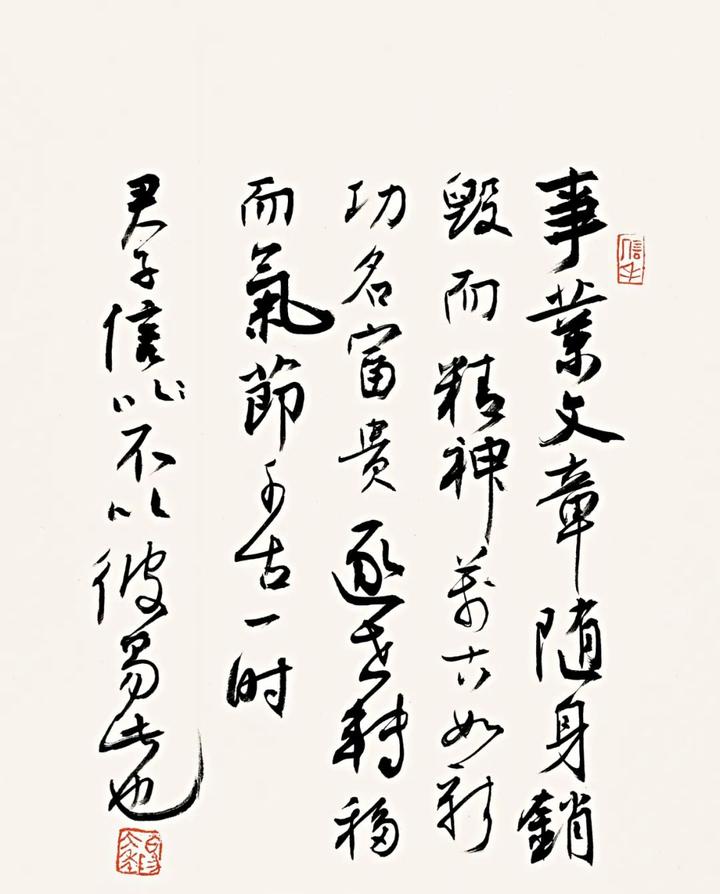 事業文章随身銷
毀而精神萬古如新
功名富貴逐世轉移
而氣節千古一时
君子信以不以彼易此也